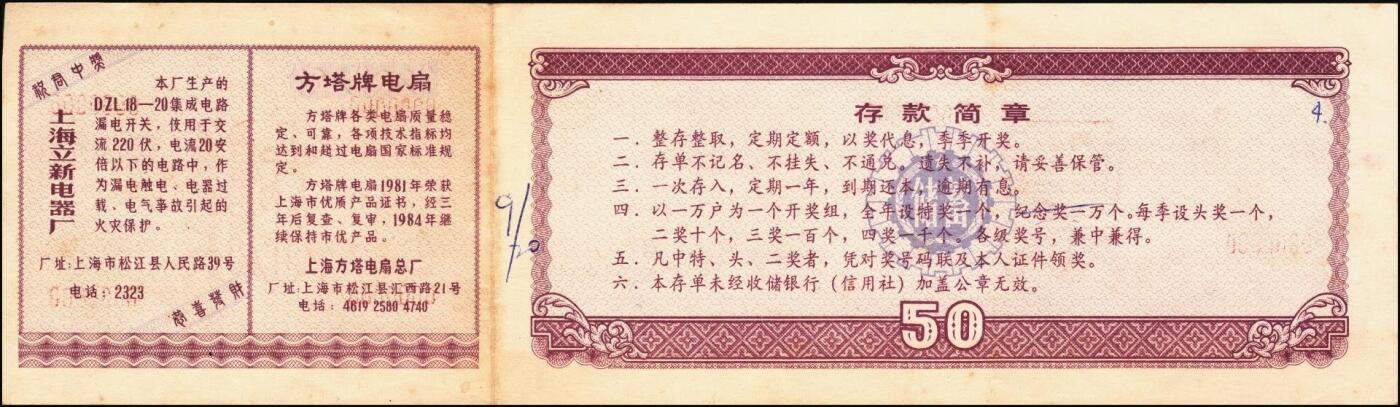 祝同中奖
上海立新电器厂
本厂生产的
DZL18—20集成电路
漏电开关，使用于交
流220伏，电流20安
倍以下的电路中，作
为漏电触电、电器过
载、电气事故引起的
火灾保护。
厂址：上海市松江县人民路39号
电话：2323
恭喜发财
方塔牌电扇
方塔牌各类电扇质量稳
定、可靠，各项技术指标均
达到和超过电扇国家标准规
定。
方塔牌电扇1981年荣获
上海市优质产品证书，经三
年后复查、复审，1984年继
续保持市优产品。
上海方塔电扇总厂
厂址：上海市松江县汇西路21号
电话：4619 2580 4740
9/20
存款简章
一．整存整取，定期定额，以奖代息，季季开奖。
二．存单不记名、不挂失、不通兑、遗失不补，请妥善保管。
三．一次存入，定期一年，到期还本，逾期有息。
四．以一万户为一个开奖组，全年设特奖一个，纪念奖一万个。每季设头奖一个，
二奖十个，三奖一百个，四奖一千个。各级奖号，兼中兼得。
五．凡中特、头、二奖者，凭对奖号码联及本人证件领奖。
六．本存单未经收储银行（信用社）加盖公章无效。
50
4.